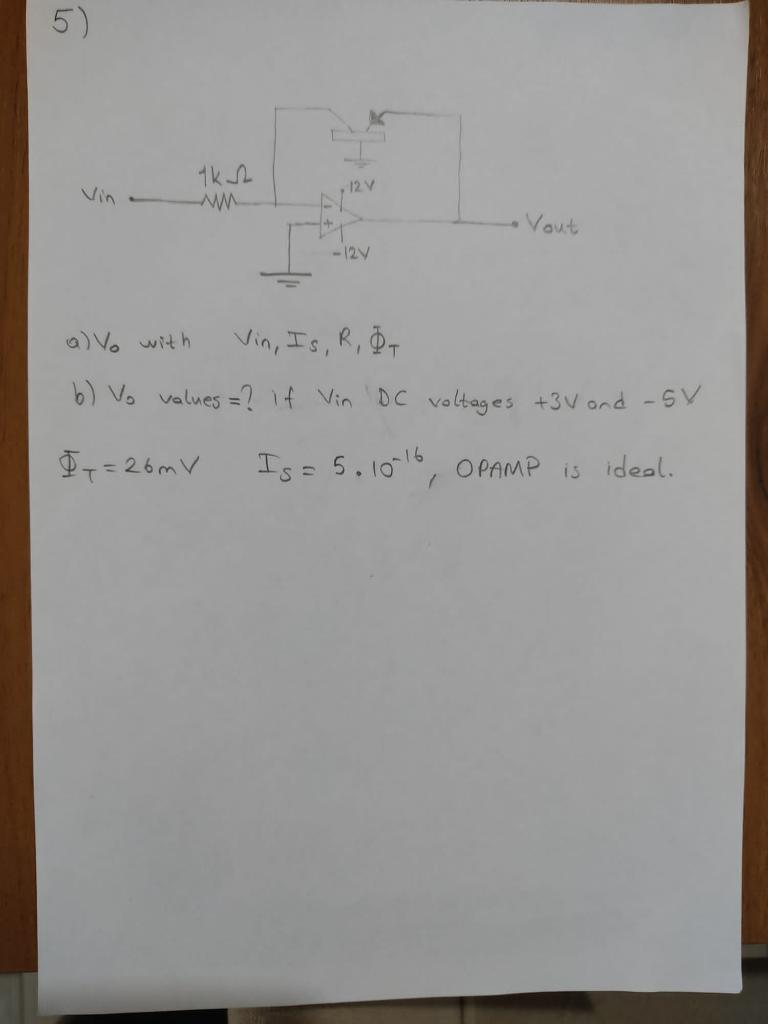 5)
1kΩ
Vin
12V
-
+
-12V
Vout
a) Vo with Vin, IS, R, ΦT
b) Vo values =? if Vin DC voltages +3V and -5V
ΦT = 26mV IS = 5.10^-16, OPAMP is ideal.